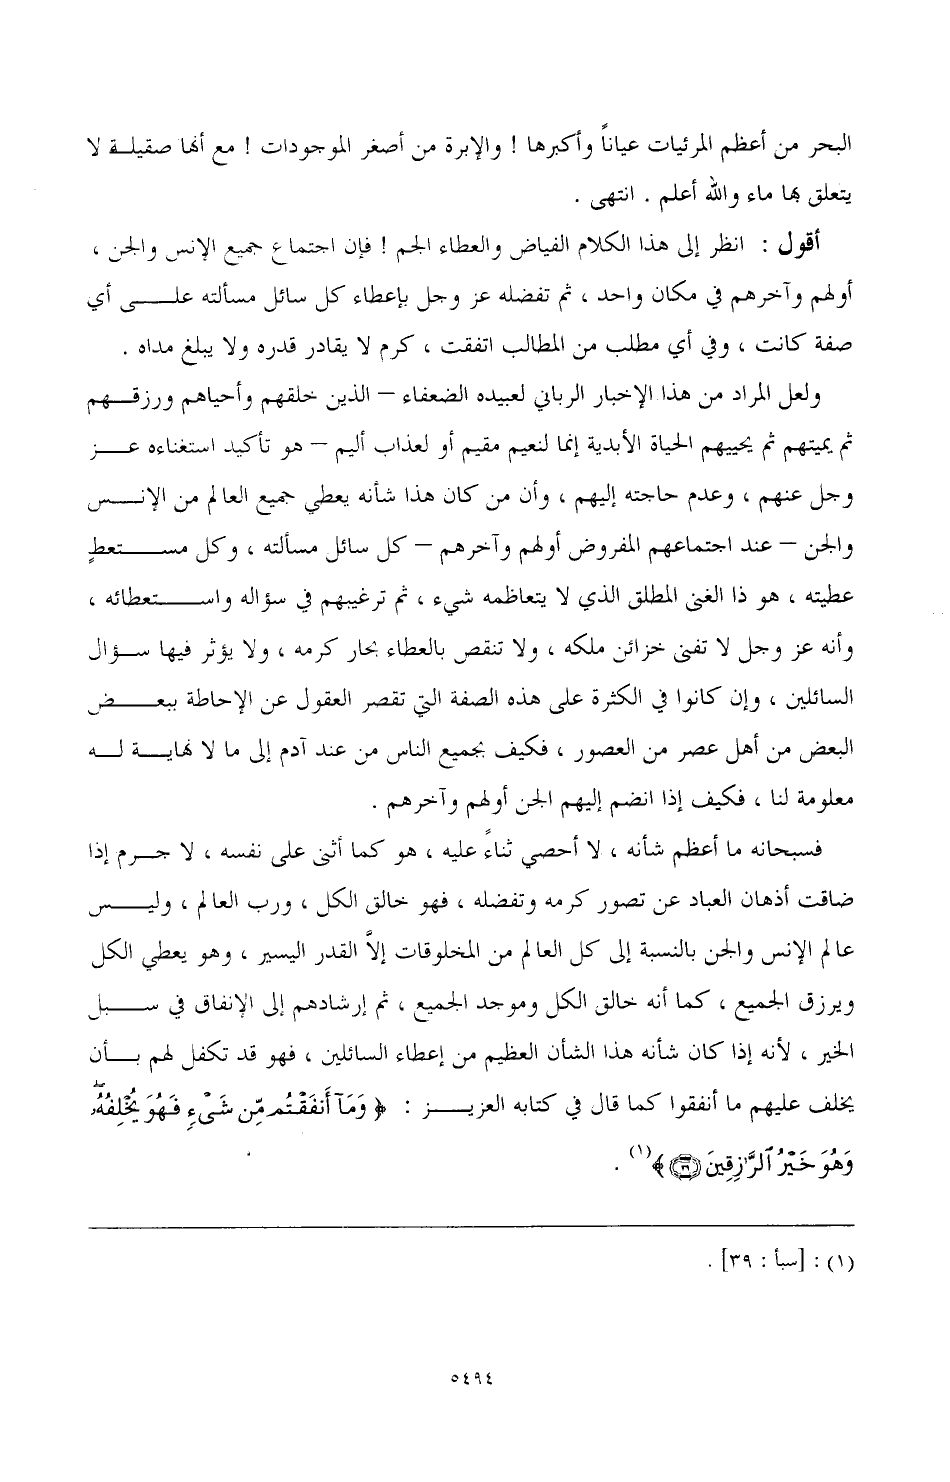 البحر من أعظم المرئيات عياناً وأكبرها ! والإبرة من أصغر الموجودات ! مع أنها صقيلة لا
يتعلق بها ماء والله أعلم . انتهى .
أقول : انظر إلى هذا الكلام الفياض والعطاء الجم ! فإن اجتماع جميع الإنس والجن ،
أولهم وآخرهم في مكان واحد ، ثم تفضله عز وجل بإعطاء كل سائل مسألته على أي
صفة كانت ، وفي أي مطلب من المطالب اتفقت ، كرم لا يقادر قدره ولا يبلغ مداه .
ولعل المراد من هذا الإخبار الرباني لعبيده الضعفاء – الذين خلقهم وأحياهم ورزقهم
ثم يميتهم ثم يحييهم الحياة الأبدية إنما لنعيم مقيم أو لعذاب أليم – هو تأكيد استغناءه عز
وجل عنهم ، وعدم حاجته إليهم ، وأن من كان هذا شأنه يعطي جميع العالم من الإنس
والجن – عند اجتماعهم المفروض أولهم وآخرهم – كل سائل مسألته ، وكل مستعطٍ
عطيته ، هو ذا الغنى المطلق الذي لا يتعاظمه شيء ، ثم ترغيبهم في سؤاله واستعطائه ،
وأنه عز وجل لا تفنى خزائن ملكه ، ولا تنقص بالعطاء بحار كرمه ، ولا يؤثر فيها سؤال
السائلين ، وإن كانوا في الكثرة على هذه الصفة التي تقصر العقول عن الإحاطة ببعض
البعض من أهل عصر من العصور ، فكيف بجميع الناس من عند آدم إلى ما لا نهاية له
معلومة لنا ، فكيف إذا انضم إليهم الجن أولهم وآخرهم .
فسبحانه ما أعظم شأنه ، لا أحصي ثناءً عليه ، هو كما أثنى على نفسه ، لا جرم إذا
ضاقت أذهان العباد عن تصور كرمه وتفضله ، فهو خالق الكل ، ورب العالم ، وليس
عالم الإنس والجن بالنسبة إلى كل العالم من المخلوقات إلاَّ القدر اليسير ، وهو يعطي الكل
ويرزق الجميع ، كما أنه خالق الكل وموجد الجميع ، ثم إرشادهم إلى الإنفاق في سبل
الخير ، لأنه إذا كان شأنه هذا الشأن العظيم من إعطاء السائلين ، فهو قد تكفل لهم بأن
يخلف عليهم ما أنفقوا كما قال في كتابه العزيز : ﴿ وَمَآ أَنفَقْتُم مِّن شَىْءٍ فَهُوَ يُخْلِفُهُۥ
وَهُوَ خَيْرُ ٱلرَّٰزِقِينَ ٣٩ ﴾(١) .
(١) : [سبأ : ٣٩] .
٥٤٩٤